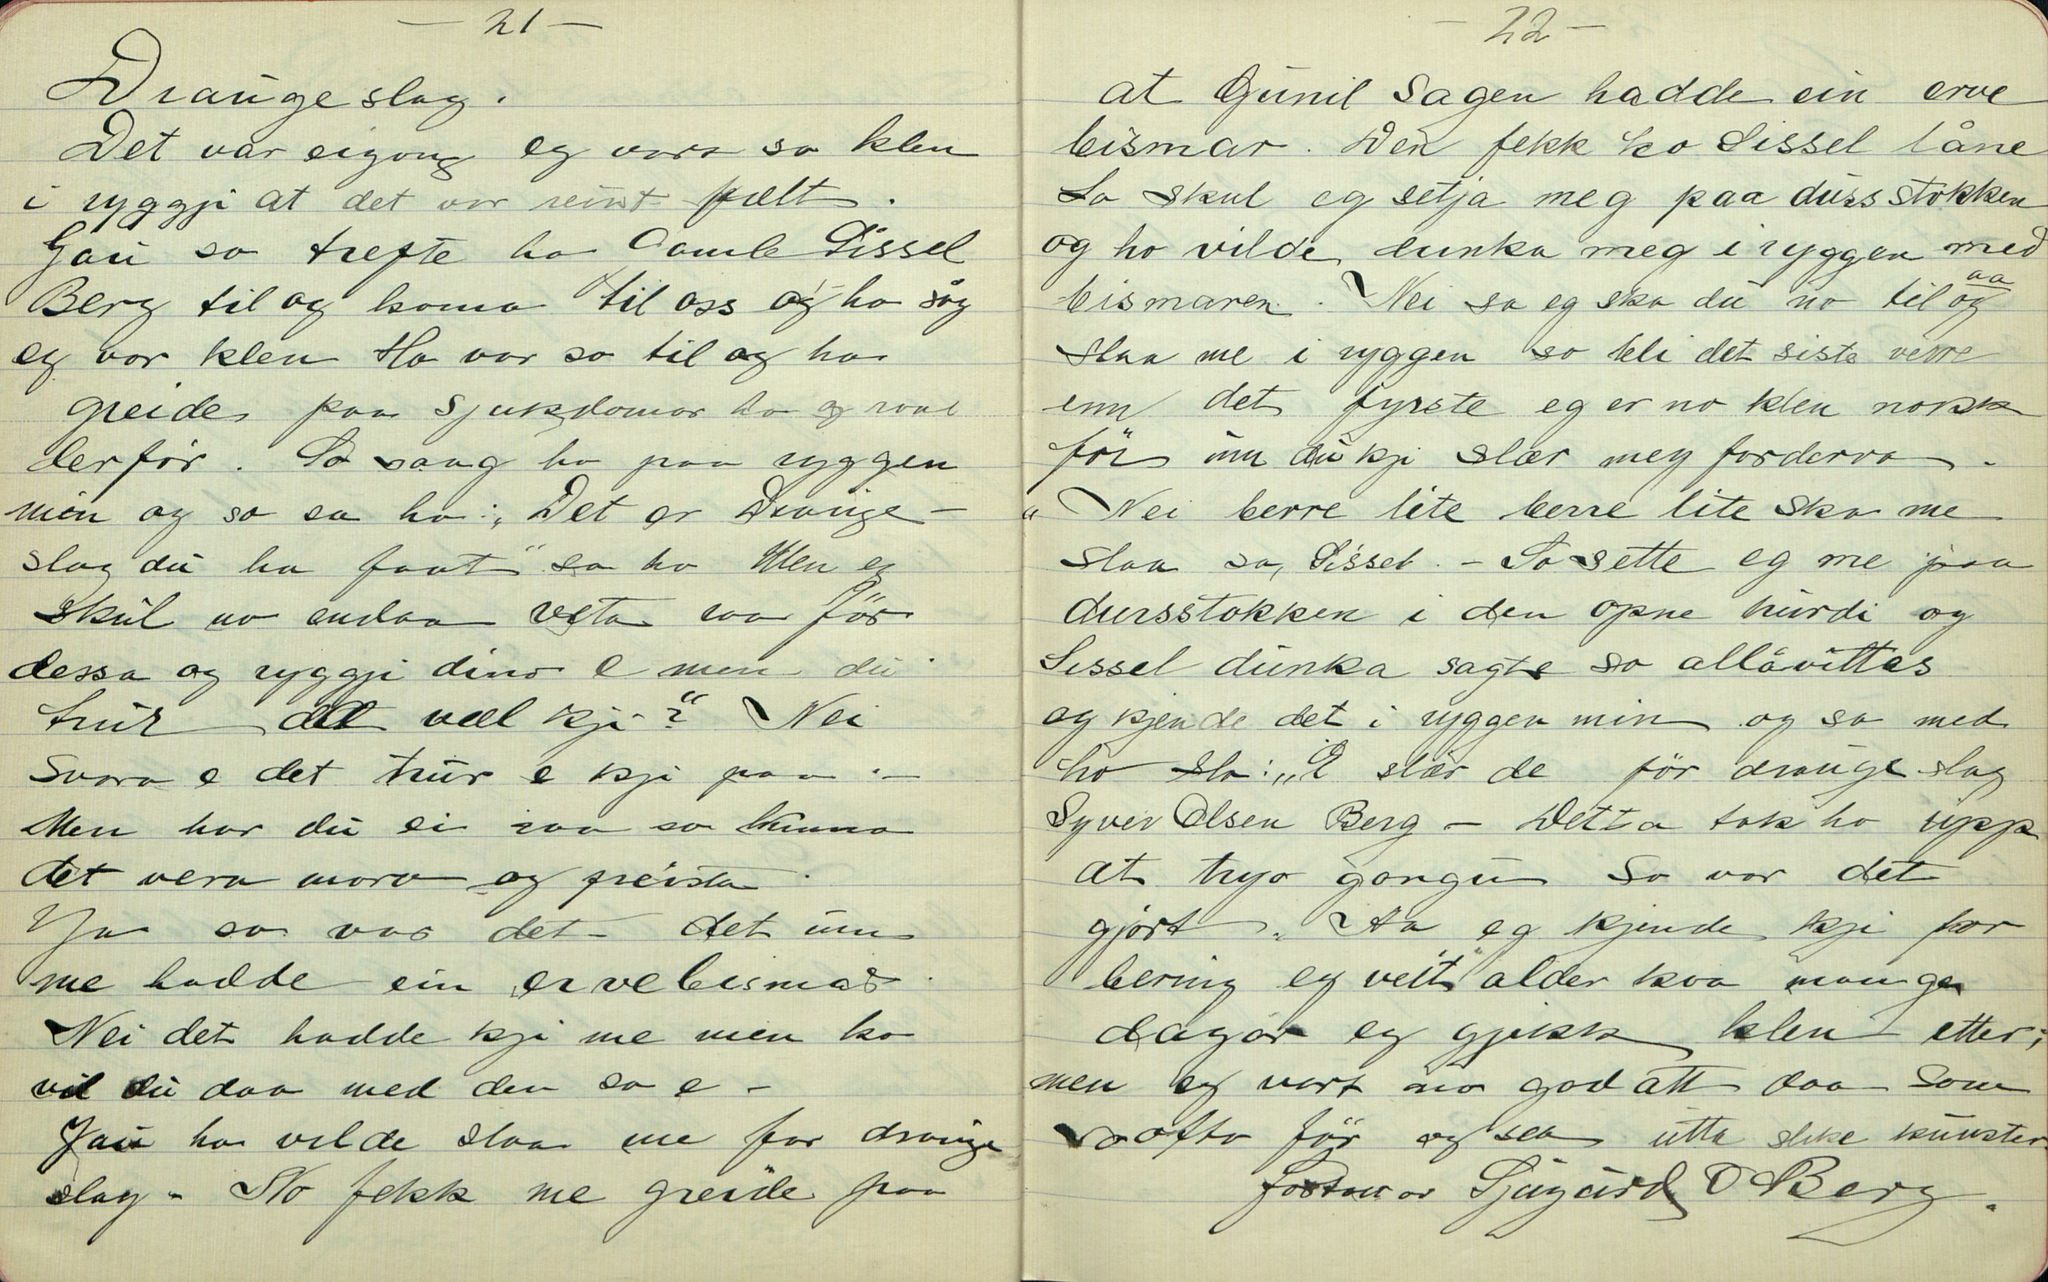 — 21 —
Draugeslag.
Det var eigong eg vart so klen
i ryggji at det var reint fælt.
Gau so trefte ho Gamle Sissel
Berg til og koma til oss og ho såg
eg var klen Ho var so til og ha
greide paa sjukdomar ho og raad
derfor. So saag ho paa ryggen
min og so sa ho: „Det er Drauge-
slag du ha faat" sa ho Men eg
skul no endaa veta raa før
dessa og ryggji dino e men du
trur det væl kji?" Nei
svara e det trur e kji paa. —
Men har du ei raa so kunna
det vera moro og freista.
Ja so var det det um
me hadde ein ervebismar.
Nei det hadde kji me men ko
vil du daa med den sa e —
Jau ho vilde slaa me for drauge
slag – No fekk me greide paa
— 22 —
at Gunil Sagen hadde ein erve
bismar. Den fekk ho Sissel låne
So skul eg setja meg paa dursstokken
og ho vilde dunka meg i ryggen med
bismaren. Nei sa eg ska du no til og
aa
slaa me i ryggen so bli det siste verre
enn det fyrste eg er no klen nokk
før um du kji slær meg forderva.
„Nei berre lite berre lite ska me
slaa sa, Sissel. – So sette eg me paa
dursstokken i den opne hurdi og
Sissel dunka sagte so allåvittas
eg kjende det i ryggen min og so med
ho sla: „E slær de før draugeslag
Syver Olsen Berg – Detta tok ho upp
at tryo gongu So var det
gjort. Aa eg kjende kji for
bering eg veit alder kva mange
dagar eg gjikk klen etter;
men eg vart no god att daa som
so ofta før og sea utta slike kunster.
Fortalt av Sjugurd O Berg.